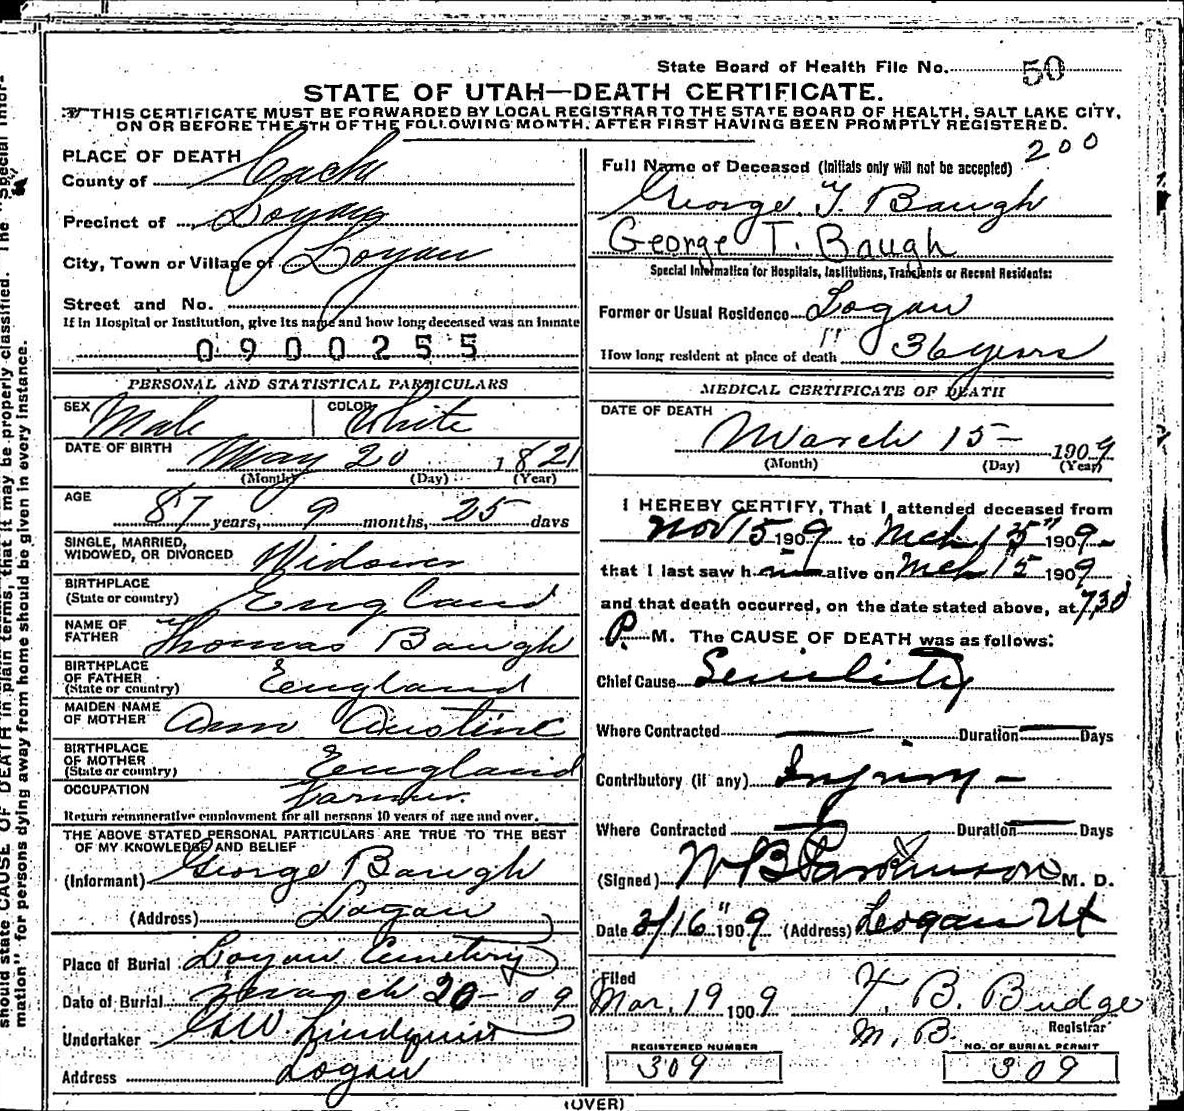 State Board of Health File No. 50
STATE OF UTAH—DEATH CERTIFICATE.
THIS CERTIFICATE MUST BE FORWARDED BY LOCAL REGISTRAR TO THE STATE BOARD OF HEALTH, SALT LAKE CITY,
ON OR BEFORE THE 5TH OF THE FOLLOWING MONTH, AFTER FIRST HAVING BEEN PROMPTLY REGISTERED.
200
PLACE OF DEATH
County of Cache
Precinct of Logan
City, Town or Village of Logan
Street and No.
If in Hospital or Institution, give its name and how long deceased was an inmate
0900255
PERSONAL AND STATISTICAL PARTICULARS
SEX Male COLOR White
DATE OF BIRTH May 20 1821
(Month) (Day) (Year)
AGE
87 years, 9 months, 25 days
SINGLE, MARRIED,
WIDOWED, OR DIVORCED Widower
BIRTHPLACE
(State or country) England
NAME OF
FATHER Thomas Baugh
BIRTHPLACE
OF FATHER
(State or country) England
MAIDEN NAME
OF MOTHER Ann Austine
BIRTHPLACE
OF MOTHER
(State or country) England
OCCUPATION Farmer.
Return remunerative employment for all persons 10 years of age and over.
THE ABOVE STATED PERSONAL PARTICULARS ARE TRUE TO THE BEST
OF MY KNOWLEDGE AND BELIEF
(Informant) George Baugh
(Address) Logan
Place of Burial Logan Cemetery
Date of Burial March 20-09
Undertaker Lindquist
Address Logan
Full Name of Deceased (Initials only will not be accepted)
George T. Baugh
George T. Baugh
Special Information for Hospitals, Institutions, Transients or Recent Residents:
Former or Usual Residence Logan
How long resident at place of death " 36 years
MEDICAL CERTIFICATE OF DEATH
DATE OF DEATH
March 15- 1909
(Month) (Day) (Year)
I HEREBY CERTIFY, That I attended deceased from
Nov 15 1909 to Mch 15" 1909-
that I last saw him alive on Mch 15 1909
and that death occurred, on the date stated above, at 7,30
P. M. The CAUSE OF DEATH was as follows:
Chief Cause Senility
Where Contracted Duration Days
Contributory (if any) Injury-
Where Contracted Duration Days
(Signed) W B Parkinson M. D.
Date 3/16" 1909 (Address) Logan Ut
Filed
Mar. 19 1909 F. B. Budge
M. B. Registrar
REGISTERED NUMBER
309
NO. OF BURIAL PERMIT
309
(OVER)
should state CAUSE OF DEATH in plain terms, that it may be properly classified. The "Special Infor-
mation" for persons dying away from home should be given in every instance.